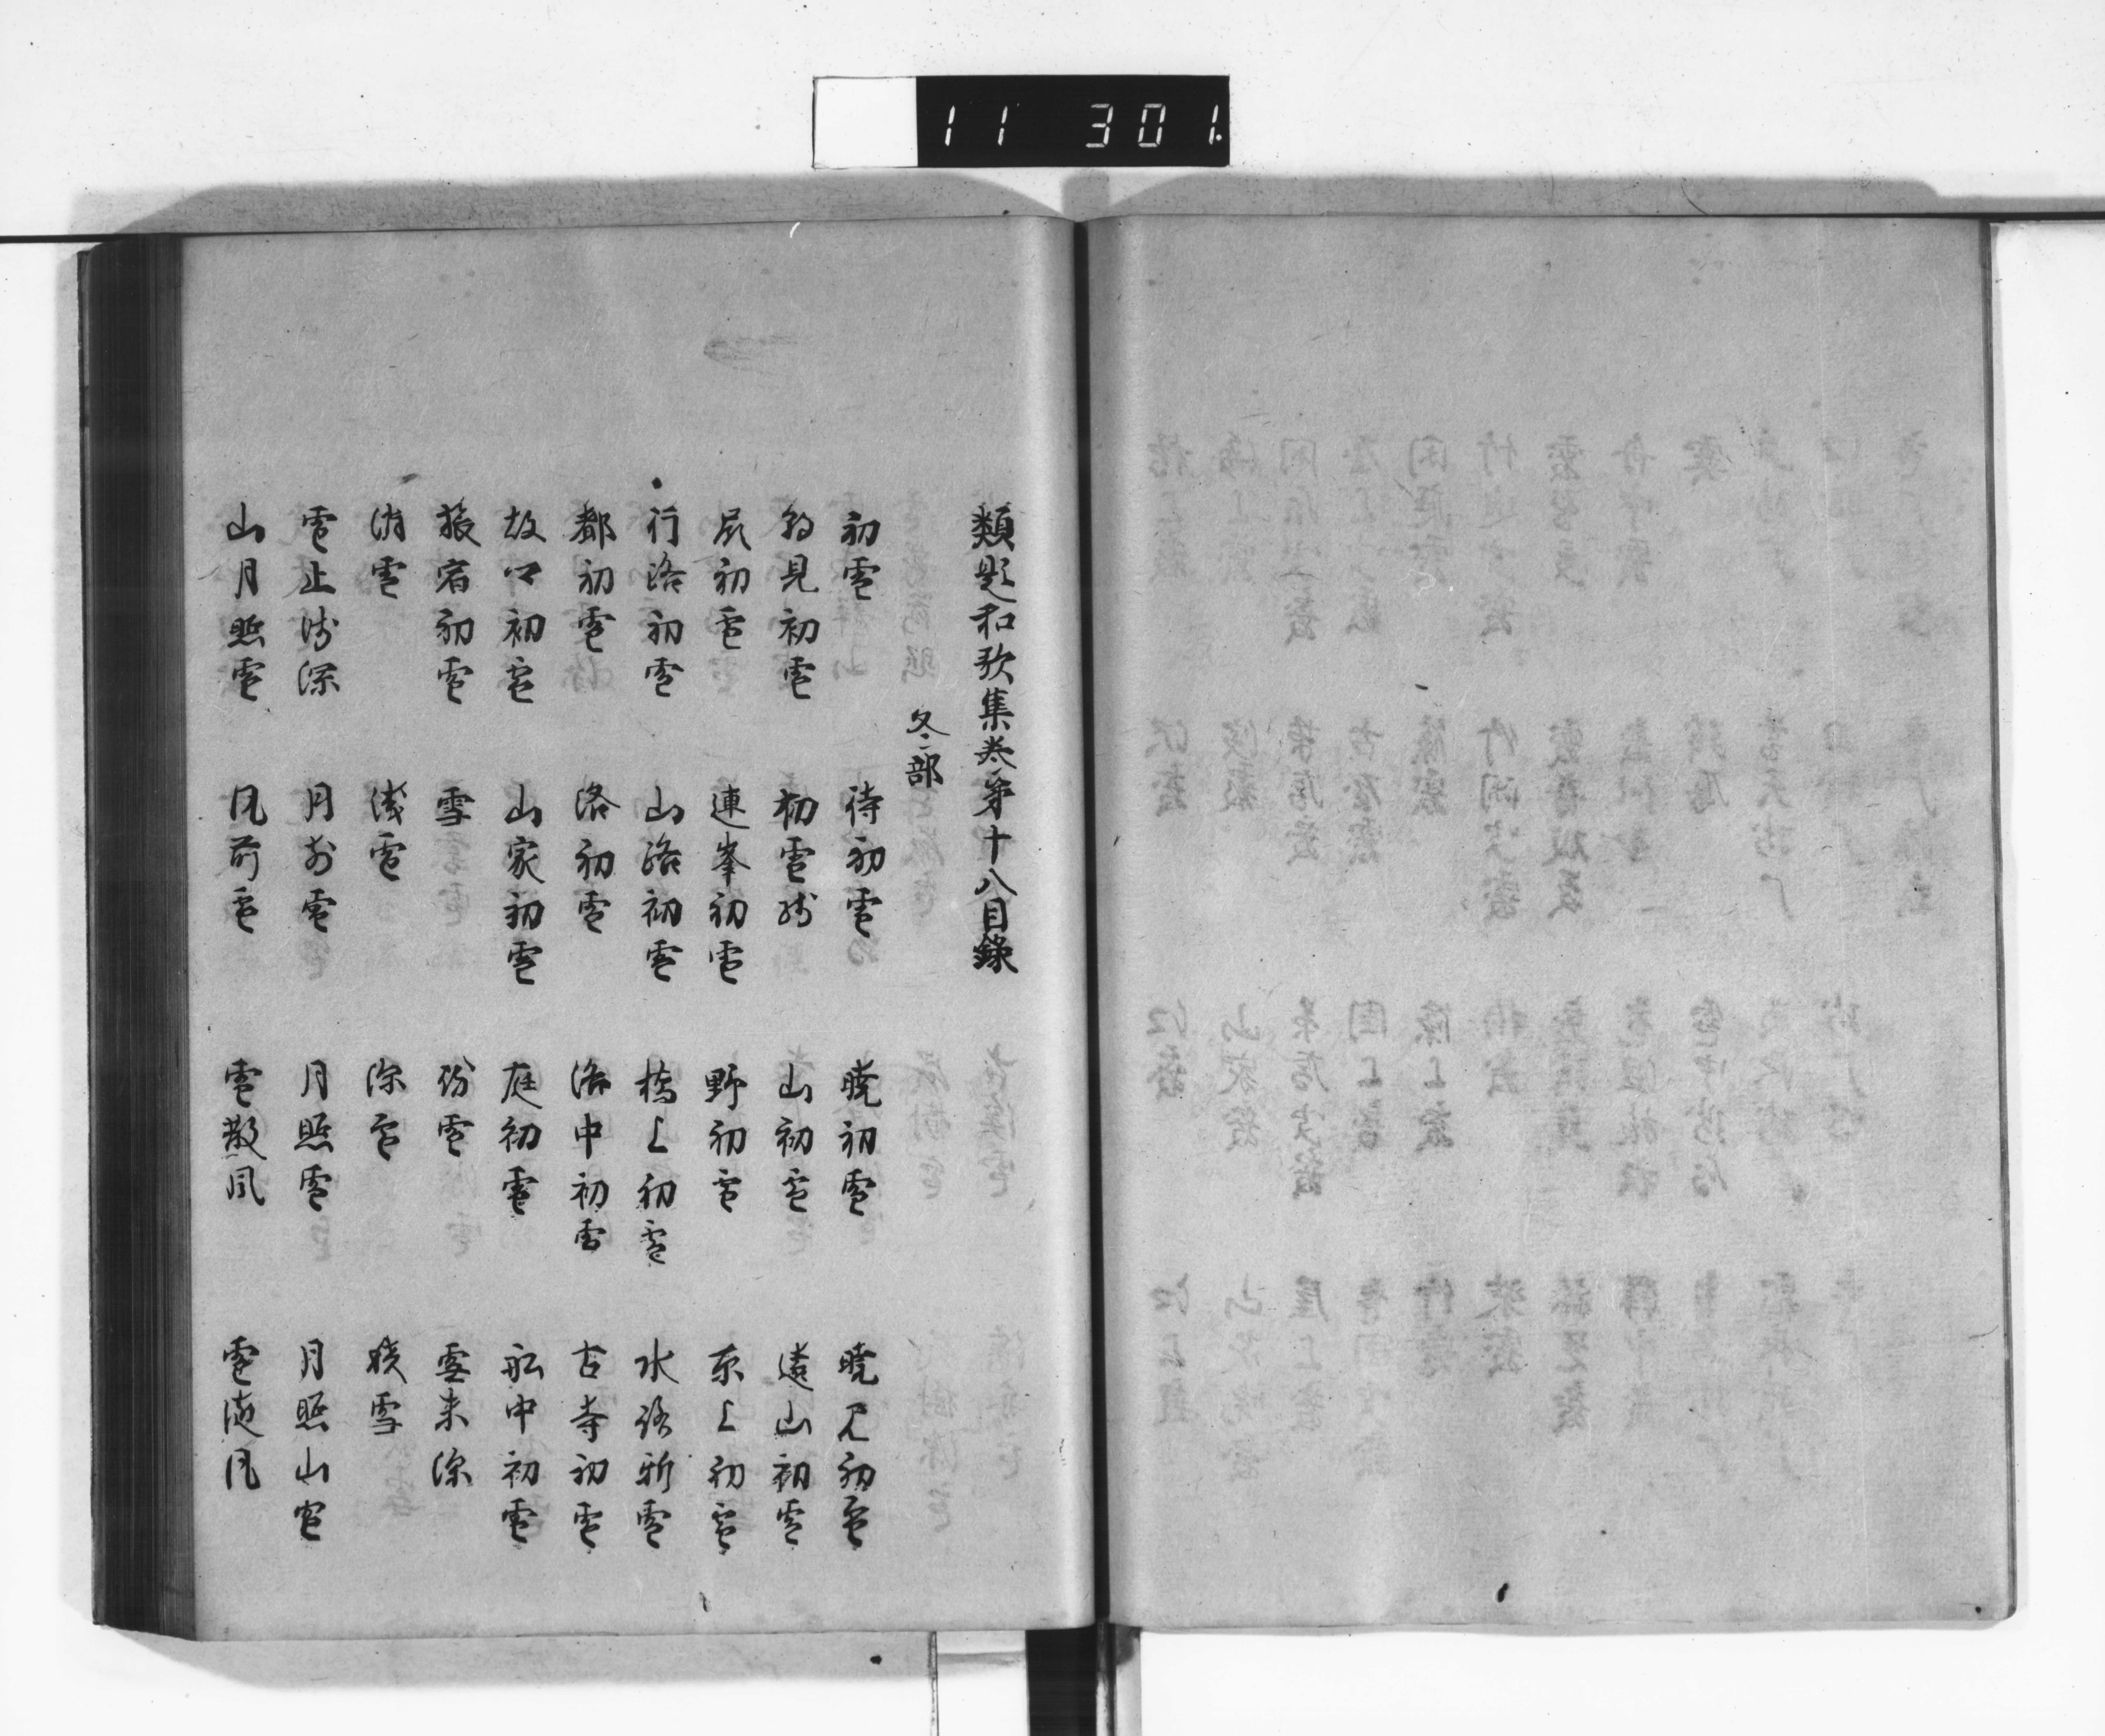 11 301.
類題和歌集巻第十八目録
冬部
初雪 待初雪 暁初雪 暁見初雪
朝見初雪 初雪残 山初雪 遠山初雪
嶺初雪 連峯初雪 野初雪 原上初雪
行路初雪 山路初雪 橋上初雪 水路新雪
都初雪 洛初雪 洛中初雪 古寺初雪
故郷初雪 山家初雪 庭初雪 船中初雪
旅宿初雪 雪 雪未深
消雪 浅雪 深雪 残雪
雪止 深 月前雪 月照雪 月照山雪
山月照雪 風前雪 雪散風 雪随風